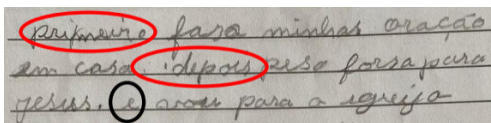 primeire faso minhas oração
em casa. depois peso forsa para
jesus. e vou para a egreija